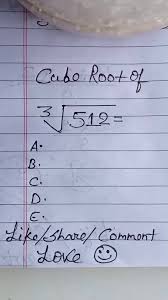 Cube Root of
∛512 =
A.
B.
C.
D.
E.
Like/Share/Comment
Love ☺